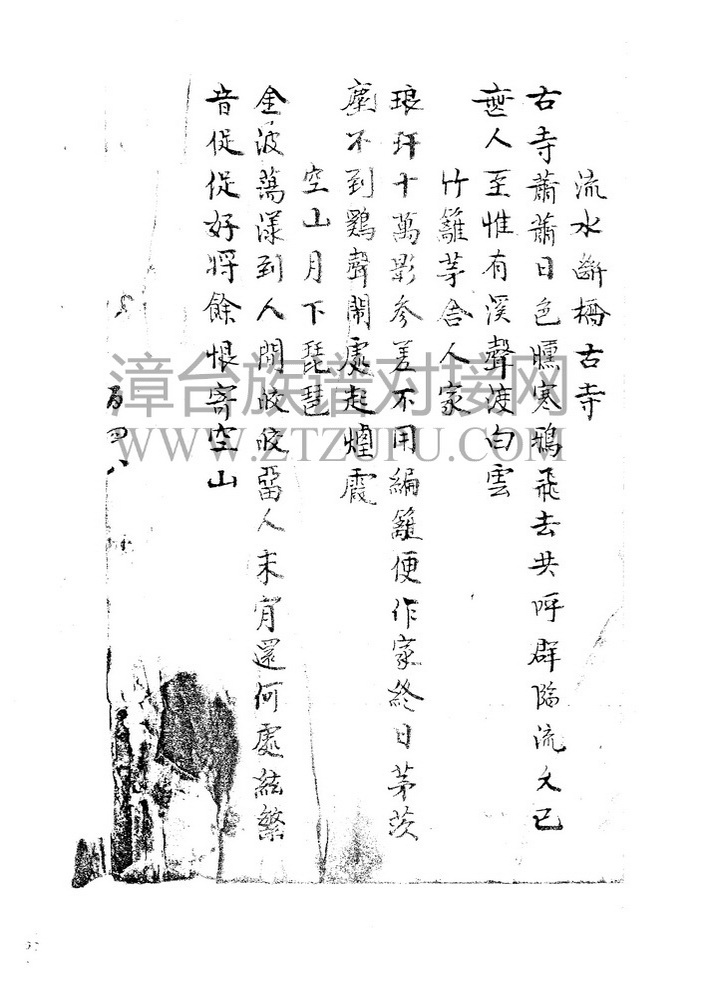 流水斷橋古寺
古寺蕭蕭日色曛寒鴉飛去共呼群臨流久已
無人至惟有溪聲渡白雲
竹籬茅舍人家
琅玕十萬影參差不用編籬便作家終日茅茨
塵不到鷄聲鬧處起煙霞
空山月下琵琶
金波蕩漾到人間皎皎留人未肯還何處絃繁
音促促好將餘恨寄空山
漳台族谱对接网
WWW.ZTZUPU.COM